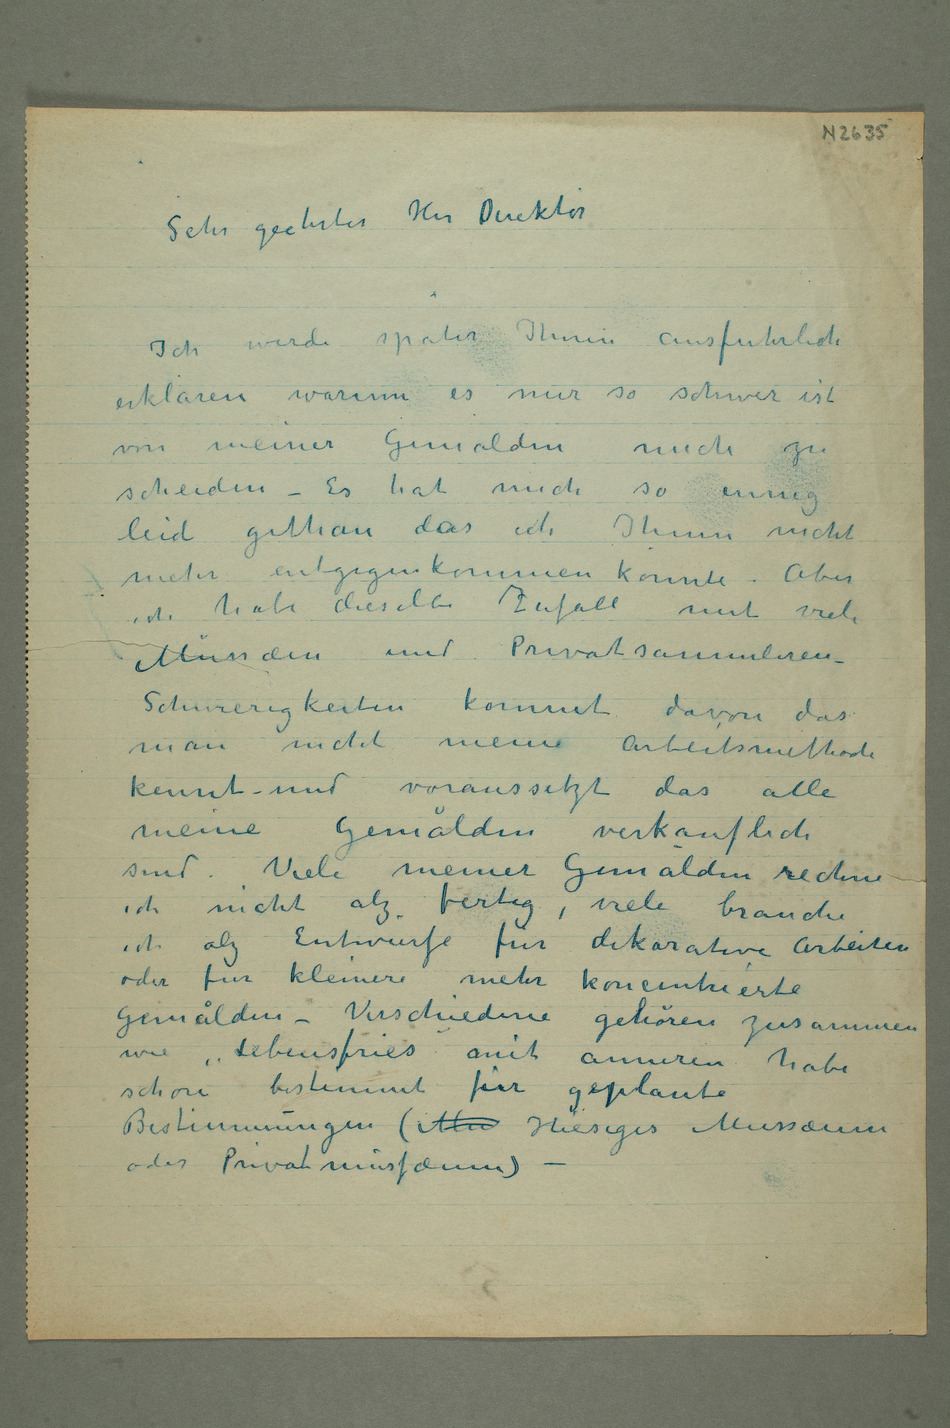 N 2635
Sehr geehrter Herr Direktor
Ich werde später Ihnen ausfuhrlich
erklaren warum es mir so schwer ist
von meiner Gemälden mich zu
scheiden – Es hat mich so innig
leid gethan das ich Ihnen nicht
mehr entgegenkommen konnte. Aber
ich habe dieselbe Zufall mit viele
Mussæen und Privatsammleren –
Schwierigkeiten kommt davon das
man nicht meine Arbeitsmethode
kennt – und voraussetzt das alle
meine Gemålden verkauflich
sind. Viele meiner Gemälden rechne
ich nicht alz fertig, viele brauche
ich alz Entwürfe für dekorative Arbeiten
oder für kleinere mehr koncentrierte
Gemålden – Verschiedene gehören zusammen
wie „Lebensfries mit anneren habe
schon bestimmt für geplante
Bestimmungen (Mu Hiesiges Mussæum
oder Privatmusfæum) –